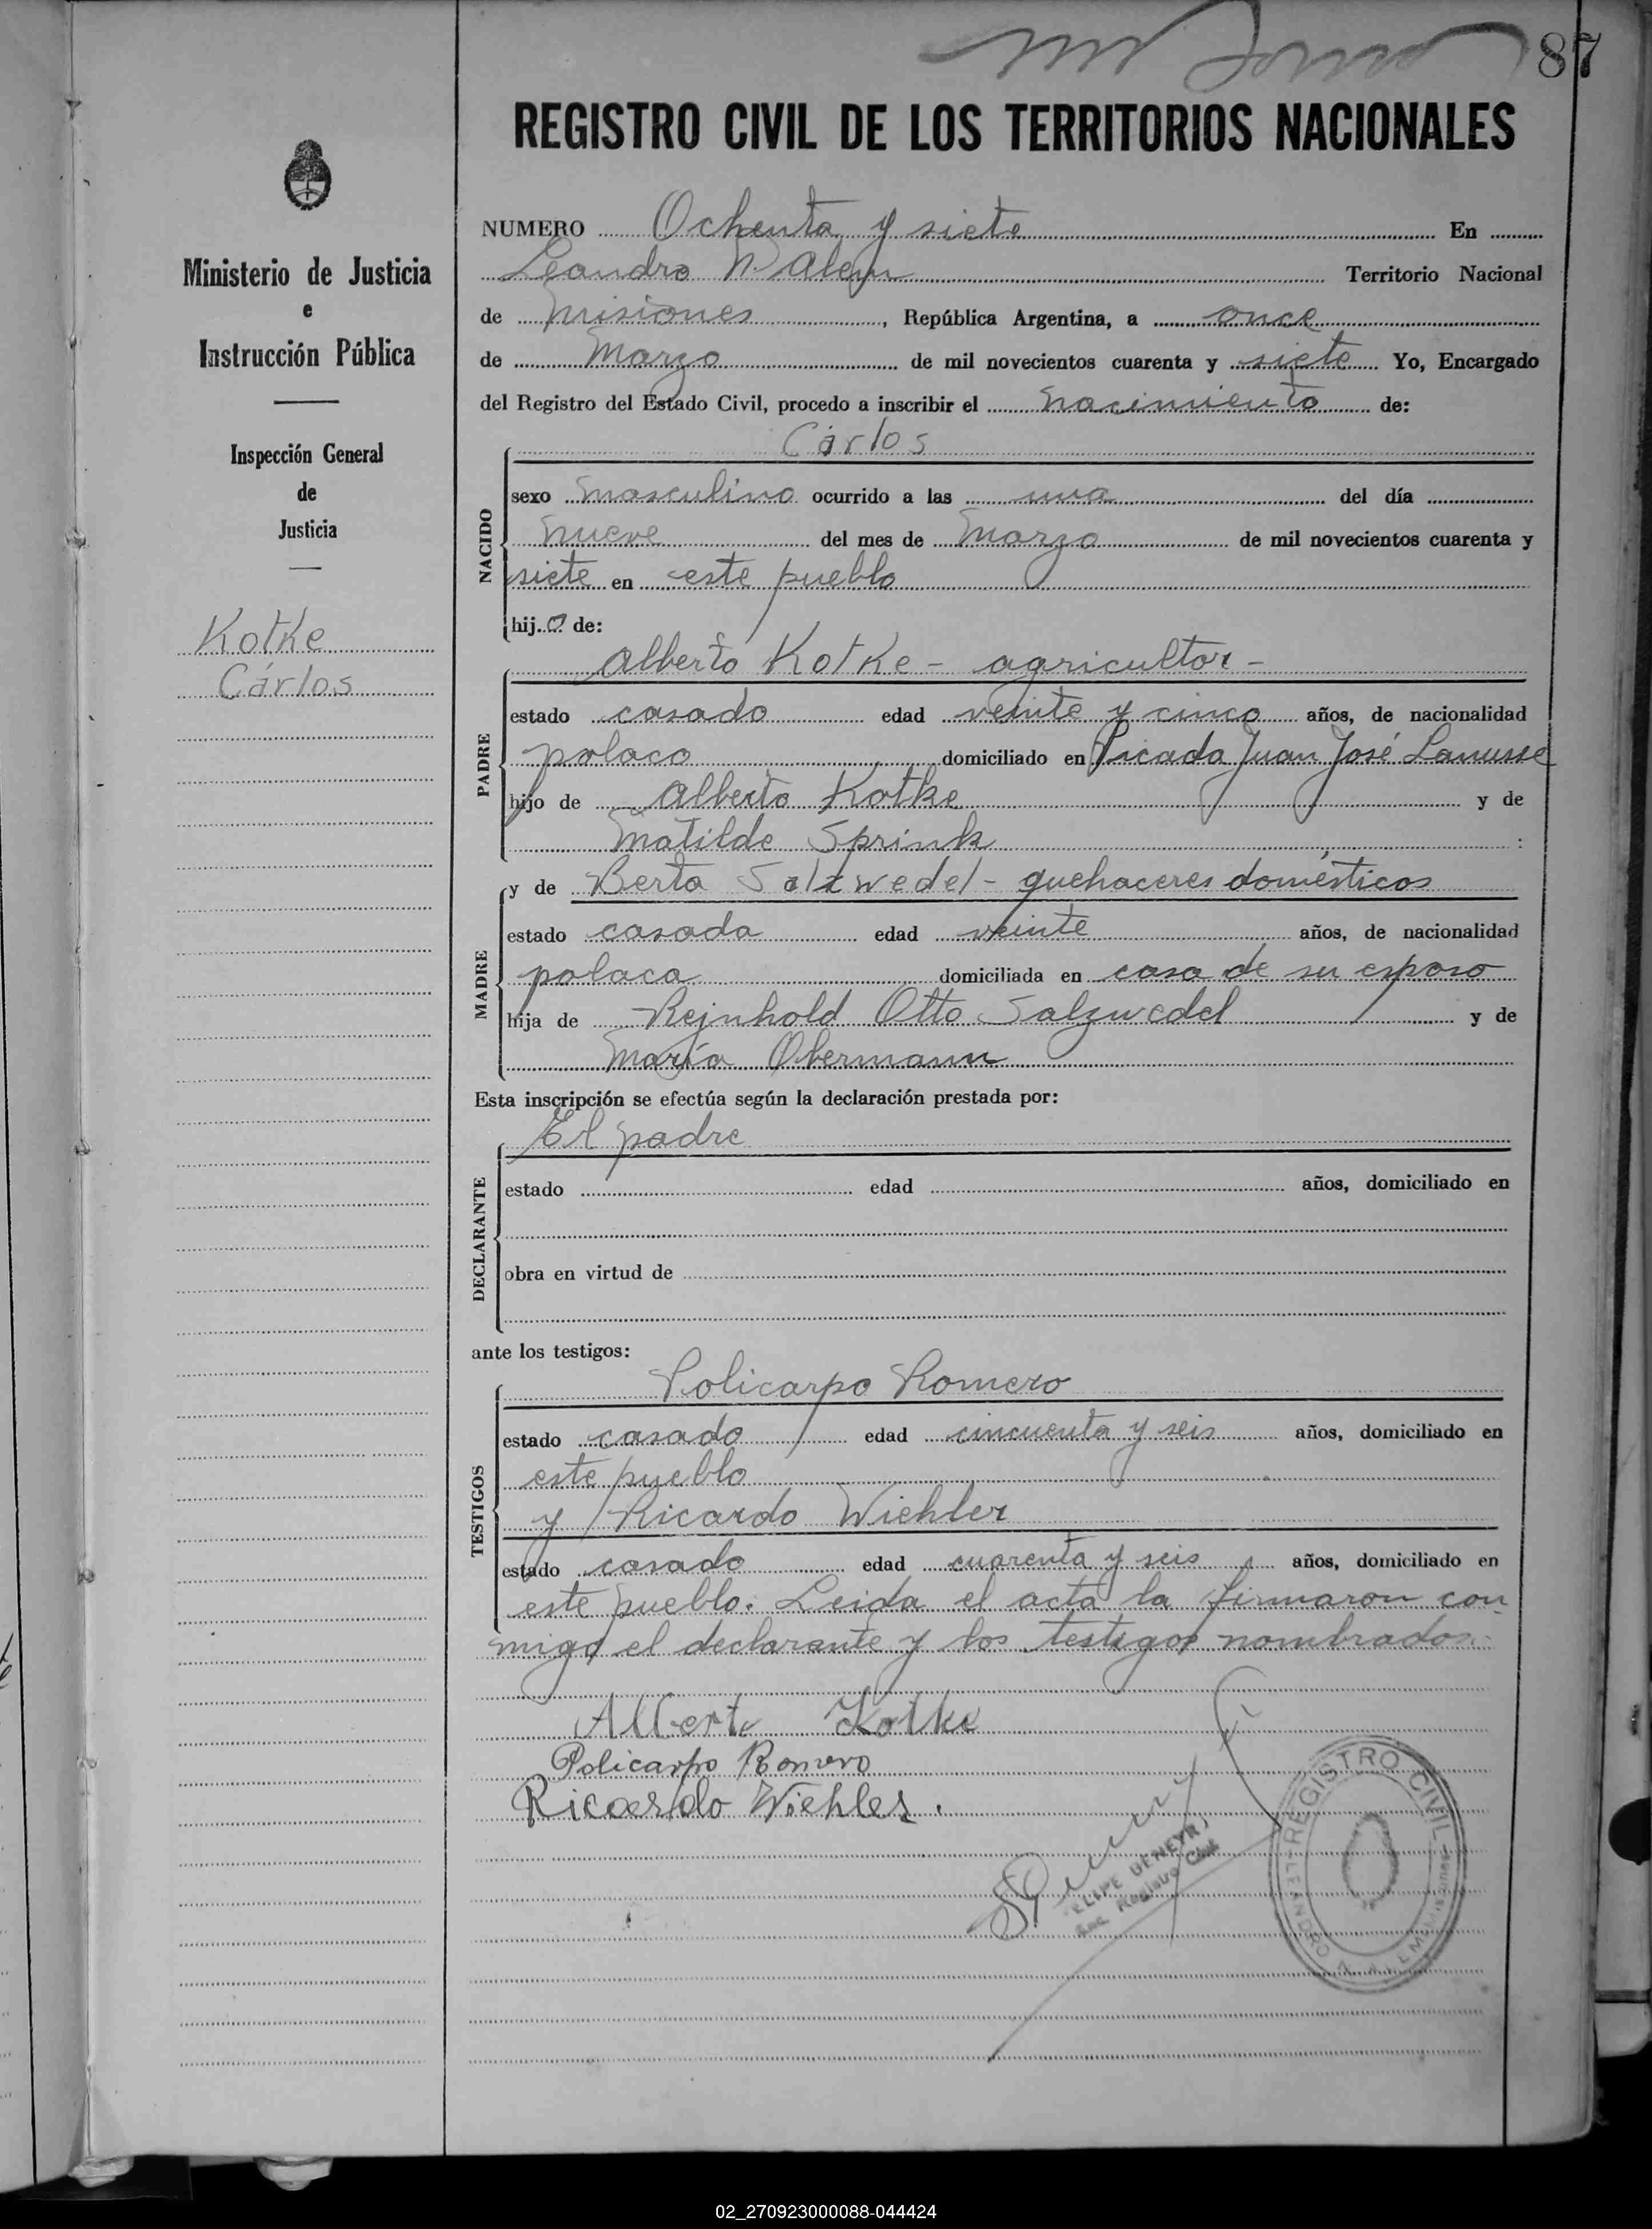 87
REGISTRO CIVIL DE LOS TERRITORIOS NACIONALES
Ministerio de Justicia
e
Instrucción Pública
Inspección General
de
Justicia
Kotke
Cárlos
NUMERO Ochenta y siete En
Leandro N. Alem Territorio Nacional
de Misiones, República Argentina, a once
de Marzo de mil novecientos cuarenta y siete Yo, Encargado
del Registro del Estado Civil, procedo a inscribir el nacimiento de:
Cárlos
NACIDO
sexo masculino ocurrido a las una del día
nueve del mes de Marzo de mil novecientos cuarenta y
siete en este pueblo
hijo de:
Alberto Kotke - agricultor -
PADRE
estado casado edad veinte y cinco años, de nacionalidad
polaco domiciliado en Picada Juan José Lanusse
hijo de Alberto Kotke y de
Matilde Sprink :
y de Berta Salzwedel - quehaceres domésticos
MADRE
estado casada edad veinte años, de nacionalidad
polaca domiciliada en casa de su esposo
hija de Rejnhold Otto Salzwedel y de
María Obermann
Esta inscripción se efectúa según la declaración prestada por:
El padre
DECLARANTE
estado edad años, domiciliado en
obra en virtud de
ante los testigos:
Policarpo Romero
TESTIGOS
estado casado edad cincuenta y seis años, domiciliado en
este pueblo
y Ricardo Wiehler
estado casado edad cuarenta y seis años, domiciliado en
este pueblo. Leida el acta la firmaron con
migo el declarante y los testigos nombrados.-
Alberto Kotke
Policarpo Romero
Ricardo Wiehler.
REGISTRO CIVIL
LEANDRO N. ALEM Misiones
02_270923000088-044424